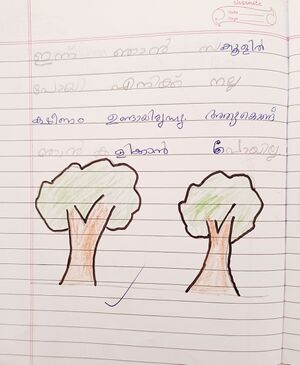 classmate
Date
Page
ഇന്ന് ഞാൻ സ്കൂളിൽ
പോയി എനിക്ക് നല്ല
ക്ഷീണം ഉണ്ടായിരുന്നു അതുകൊണ്ട്
ഞാൻ കളിക്കാൻ പോയില്ല